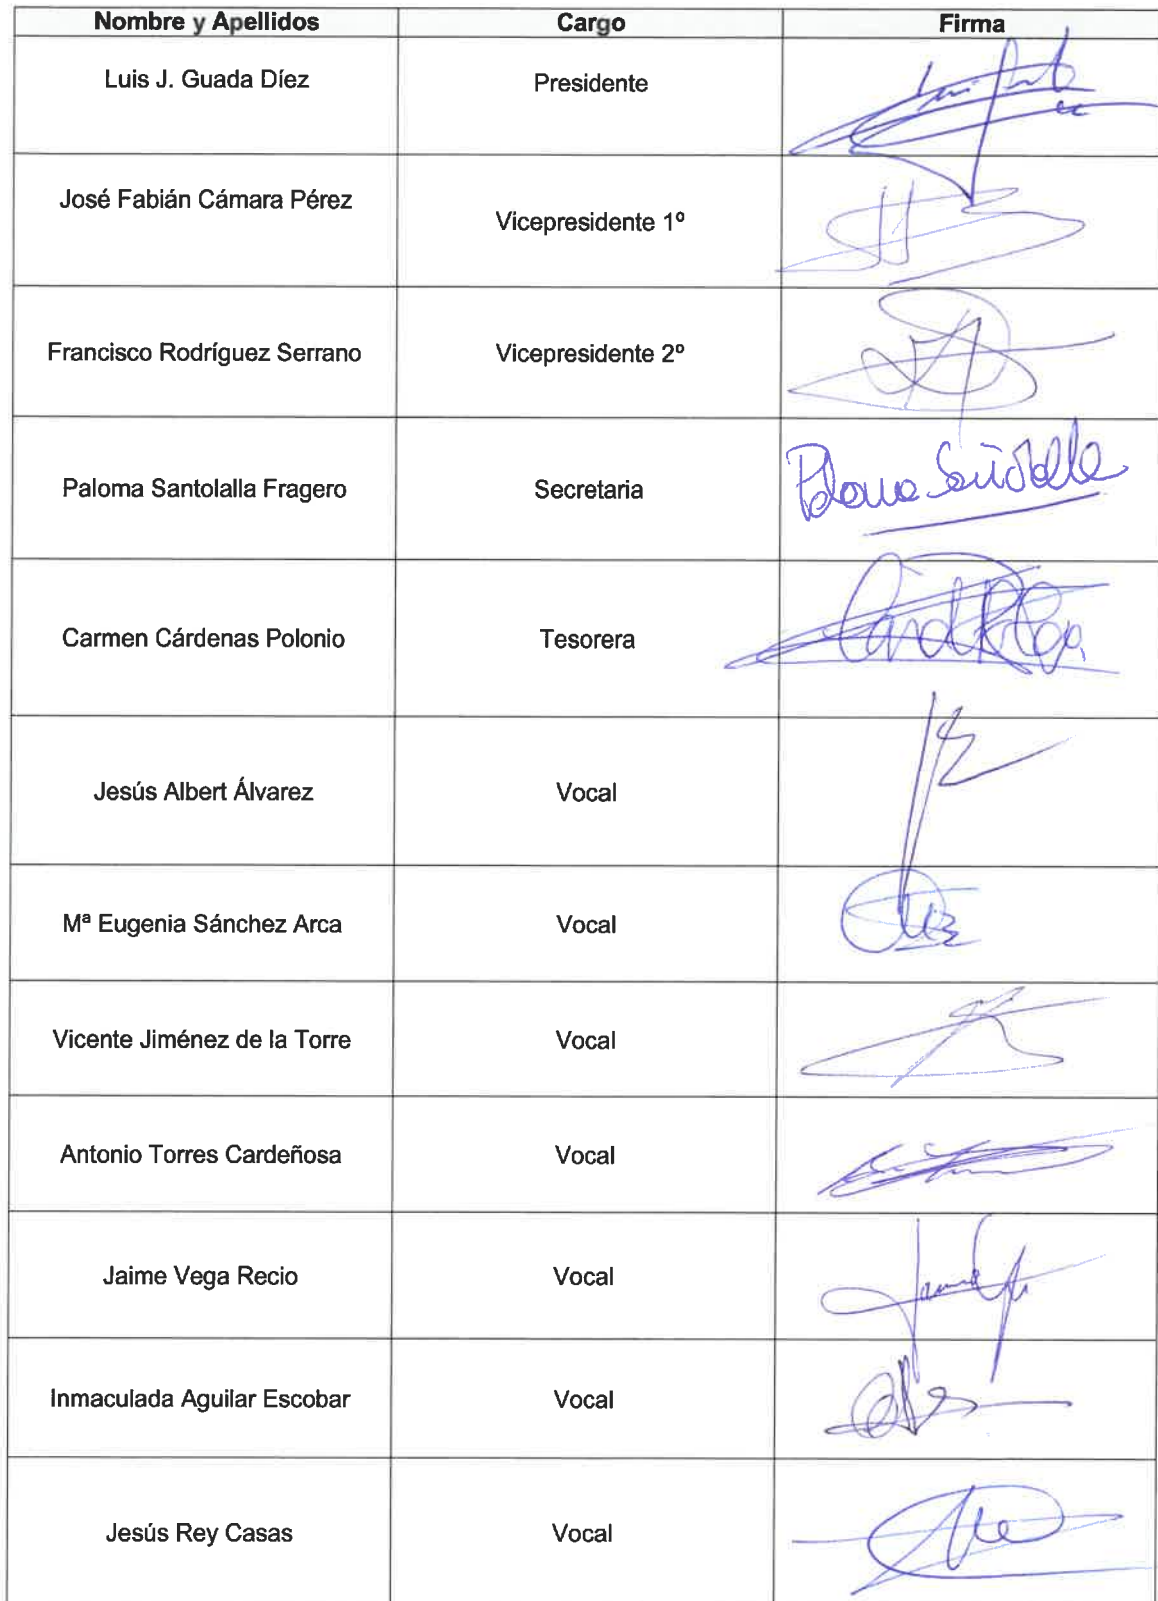 Nombre y Apellidos Cargo Firma
Luis J. Guada Díez Presidente
José Fabián Cámara Pérez Vicepresidente 1º
Francisco Rodríguez Serrano Vicepresidente 2º
Paloma Santolalla Fragero Secretaria Paloma Santolalla
Carmen Cárdenas Polonio Tesorera
Jesús Albert Álvarez Vocal
Mª Eugenia Sánchez Arca Vocal
Vicente Jiménez de la Torre Vocal
Antonio Torres Cardeñosa Vocal
Jaime Vega Recio Vocal
Inmaculada Aguilar Escobar Vocal
Jesús Rey Casas Vocal